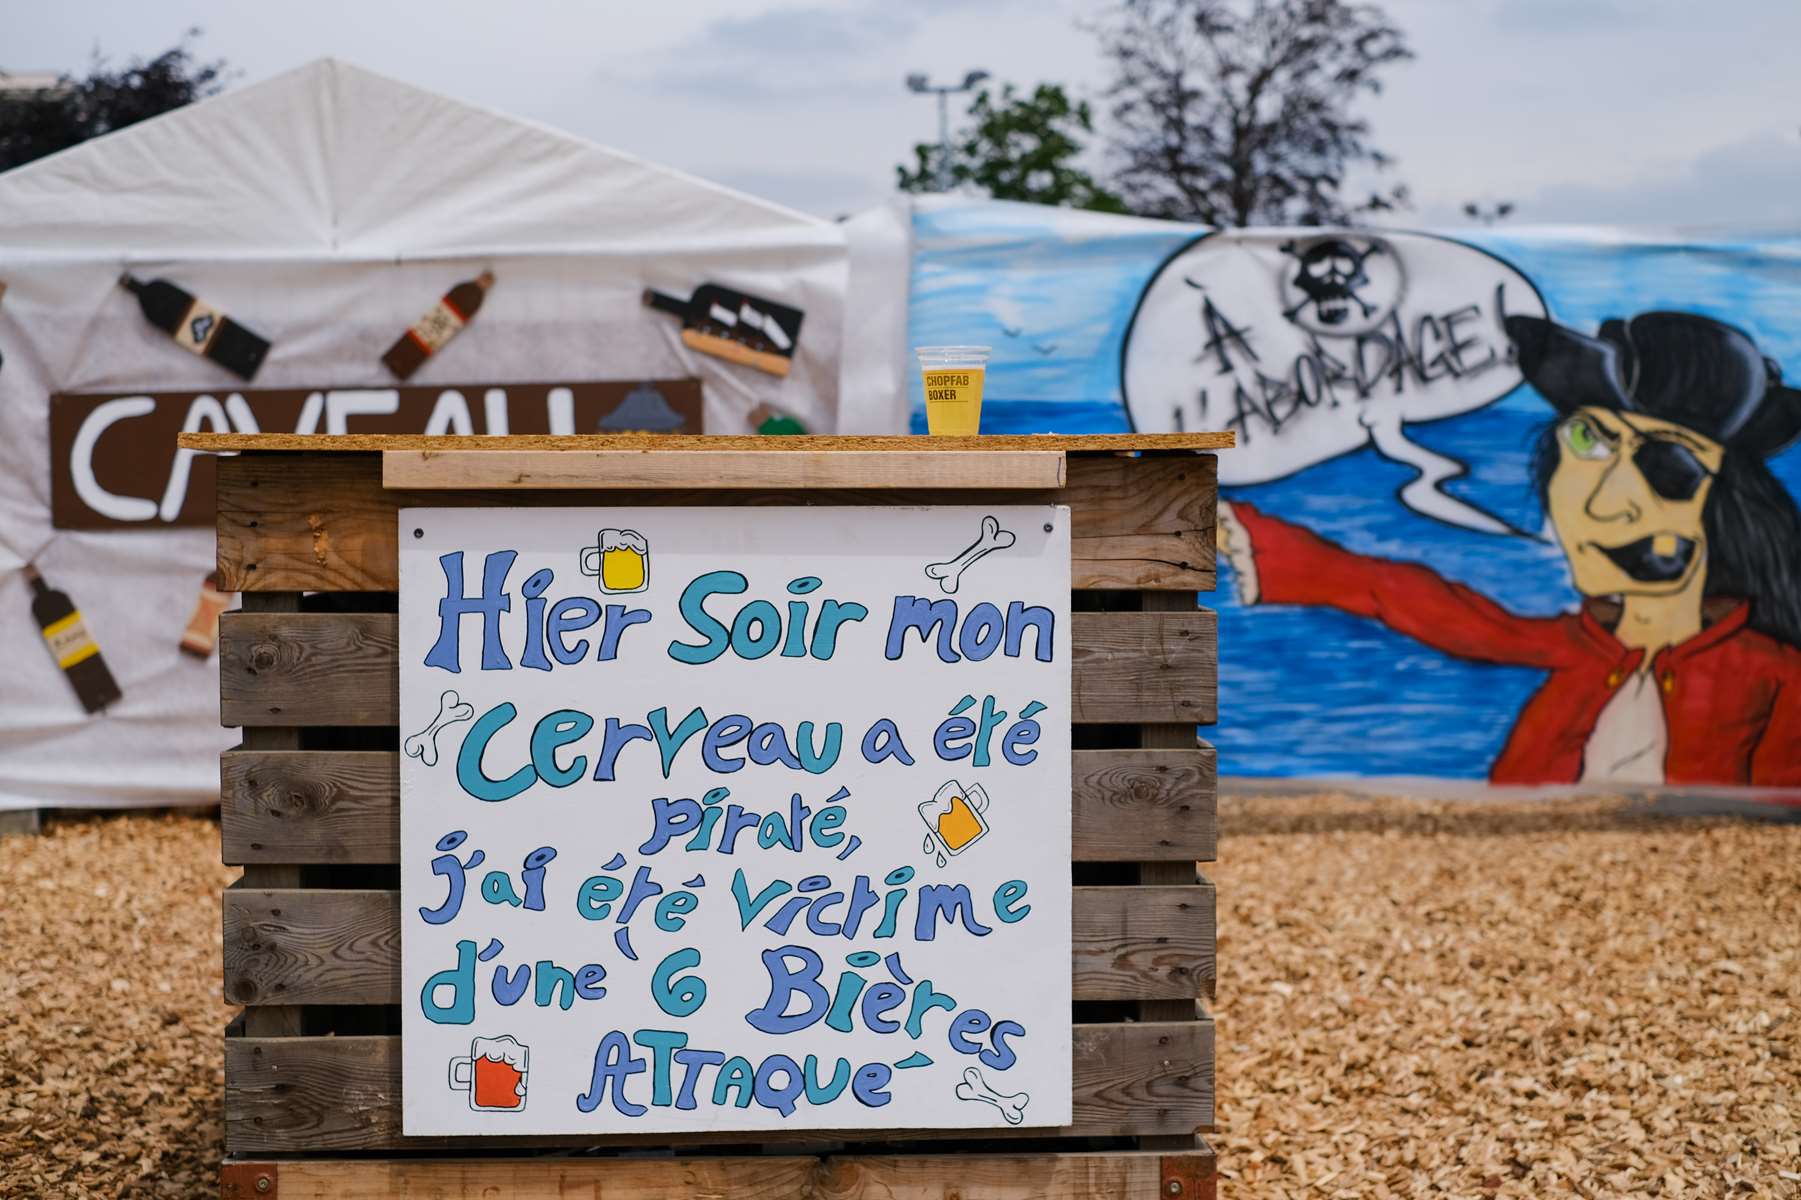 CAVEAU
CHOPFAB
BOXER
À
L'ABORDAGE!
Hier Soir mon
Cerveau a été
piraté,
j'ai été victime
d'une 6 Bières
ATTAQUÉ